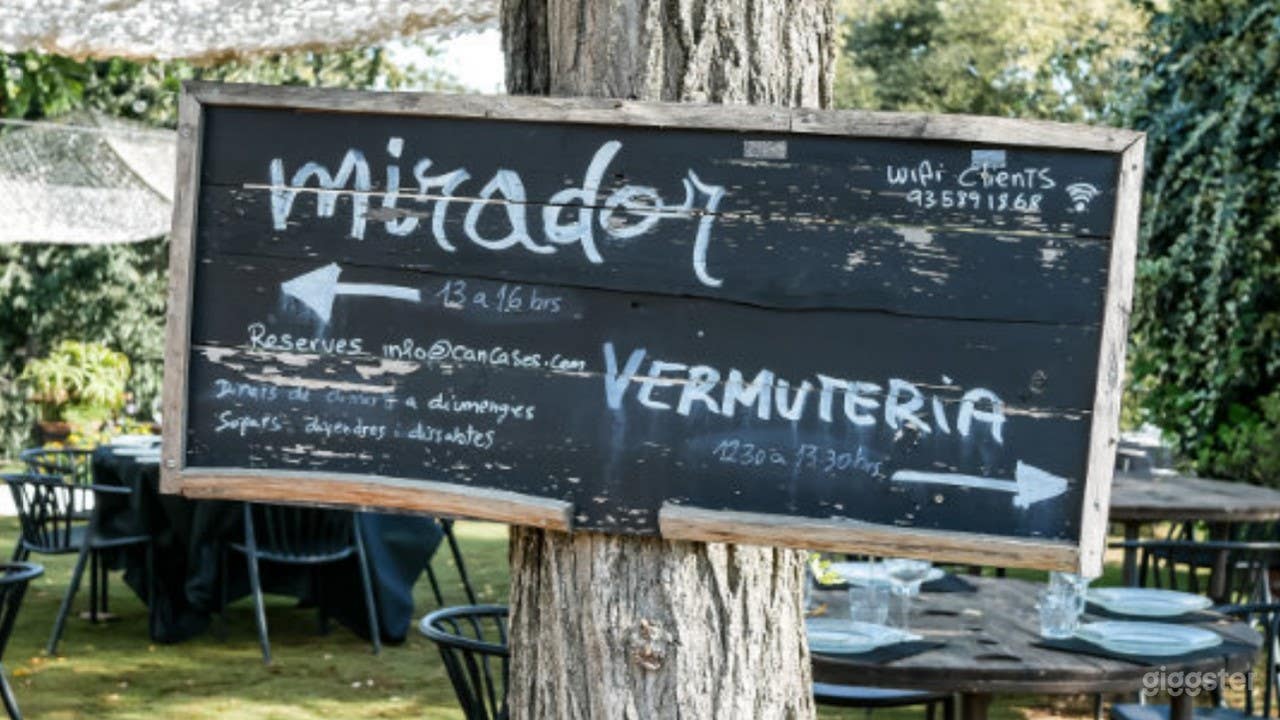 mirador
WiFi ClienTS
935891868
13 a 16 hrs
Reserves info@cancases.com
VERMUTERiA
Dinars de dimarts a diumenges
Sopars - divendres i dissabtes
1230 a 1330 hrs
giggster